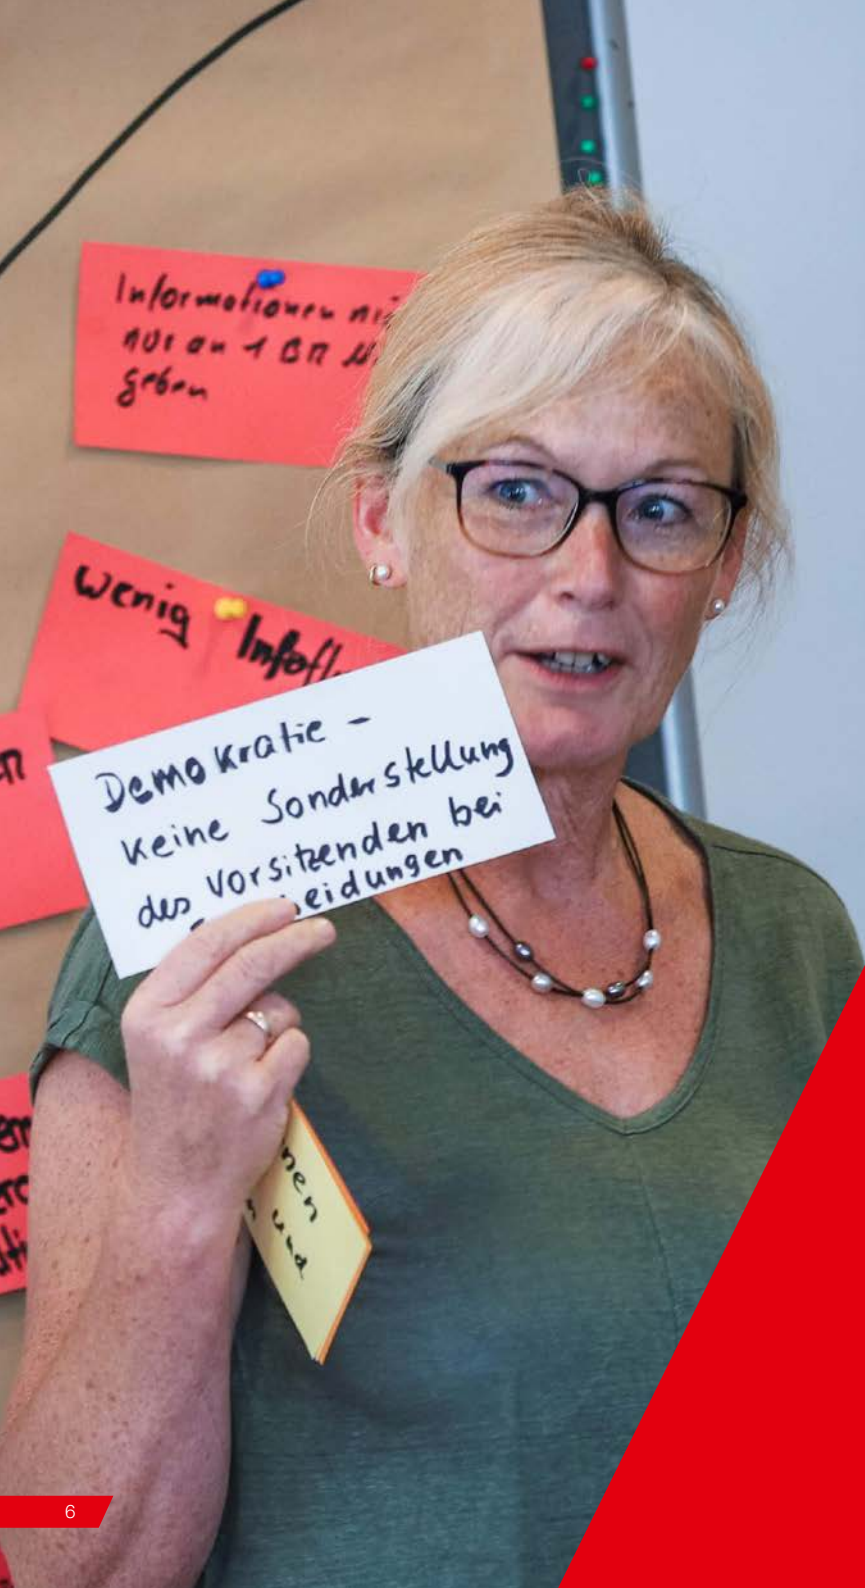 Informationen
nur an 1 BR
geben
Wenig
Demokratie –
keine Sonderstellung
des Vorsitzenden bei
nen
und
6